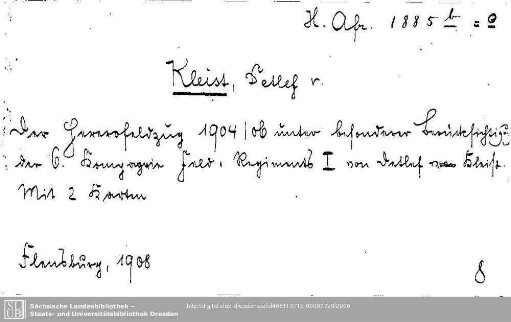 H. Afr. 1885 b = 8
Kleist, Detlef v.
Der Hererofeldzug 1904/06 unter besonderer Berücksichtig.
der 6. Kompagnie Feld-Regiments I von Detlef von Kleist.
Mit 2 Karten
Flensburg, 1908
8
Sächsische Landesbibliothek –
Staats- und Universitätsbibliothek Dresden